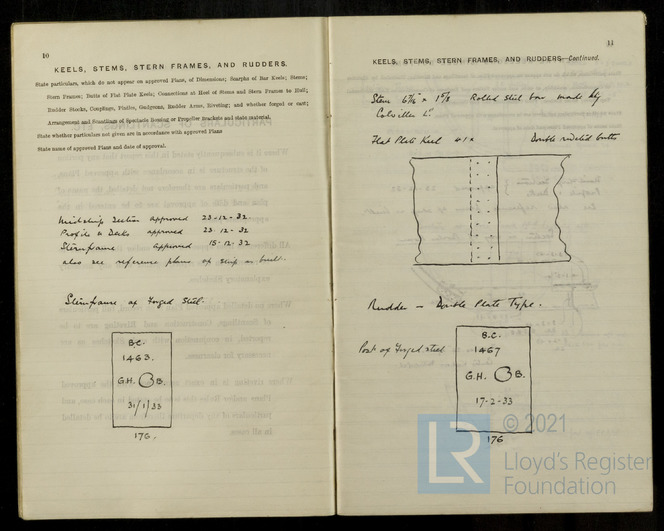 10
KEELS, STEMS, STERN FRAMES, AND RUDDERS.
State particulars, which do not appear on approved Plans, of Dimensions; Scarphs of Bar Keels; Stems;
Stern Frames; Butts of Flat Plate Keels; Connections at Heel of Stems and Stern Frames to Hull;
Rudder Stocks, Couplings, Pintles, Gudgeons, Rudder Arms, Riveting; and whether forged or cast;
Arrangement and Scantlings of Spectacle Bossing or Propeller Brackets and state material.
State whether particulars not given are in accordance with approved Plans
State name of approved Plans and date of approval.
Midship Section approved 23-12-32
Profile & Decks approved 23-12-32
Sternframe approved 15-12-32
also see reference plans of ship as built.
Sternframe of Forged Steel.
B.C.
1463.
G.H. B.
31/1/33
176.
11
KEELS, STEMS, STERN FRAMES, AND RUDDERS—Continued.
Stem Rolled steel bar made by
Colvilles Ld
Flat Plate Keel Double riveted butts
Rudder – Double Plate Type.
Post of Forged steel
B.C.
1467
G.H. B.
17-2-33
176
LR
© 2021
Lloyd's Register
Foundation